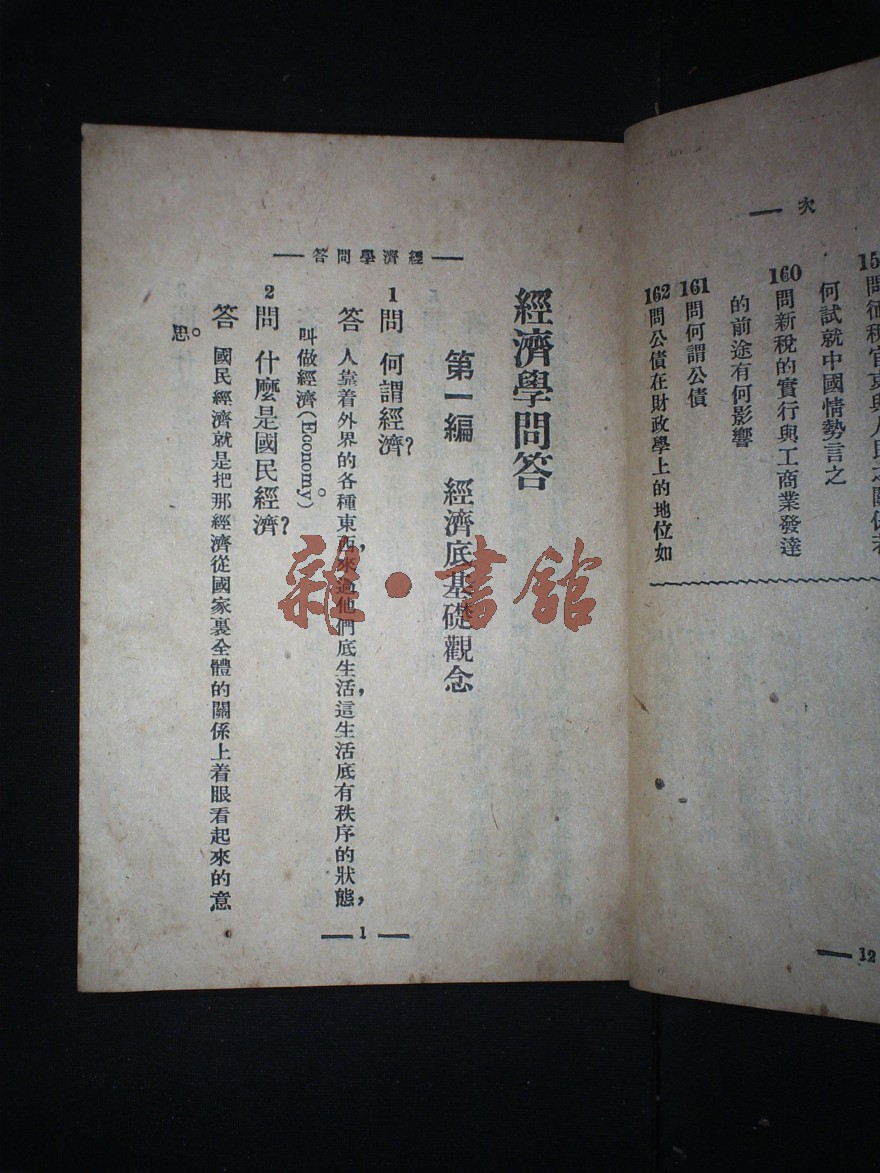 次
問征稅官吏與人民之關係若
何試就中國情勢言之
160問新稅的實行與工商業發達
的前途有何影響
161問何謂公債
162問公債在財政學上的地位如
12
經濟學問答
經濟學問答
第一編 經濟底基礎觀念
1 問 何謂經濟?
答 人靠着外界的各種東西,來過他們底生活,這生活底有秩序的狀態,
叫做經濟(Economy)。
2 問 什麼是國民經濟?
答 國民經濟就是把那經濟從國家裏全體的關係上着眼看起來的意
思。
1
雜·書館